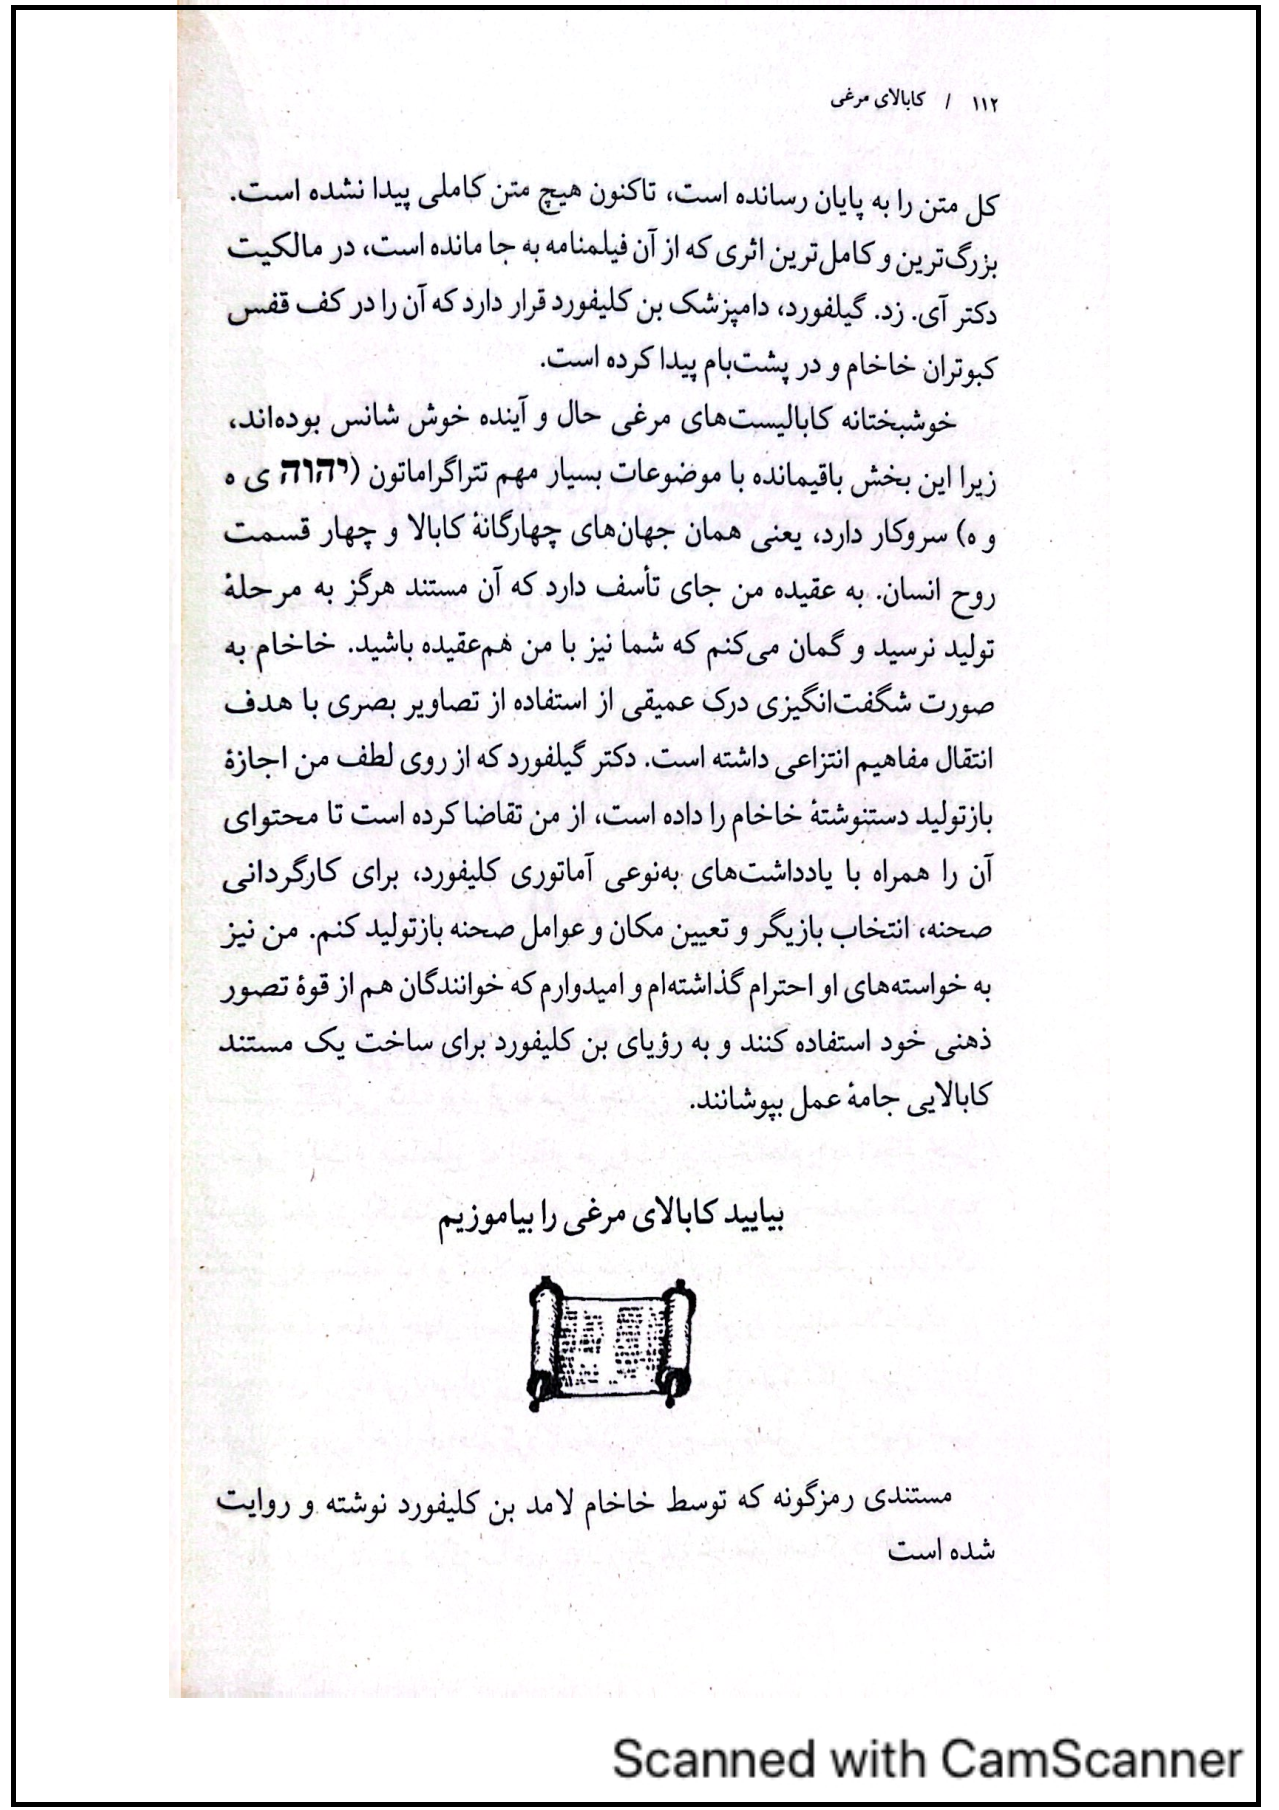 ۱۱۲ / کابالای مرغی
کل متن را به پایان رسانده است، تاکنون هیچ متن کاملی پیدا نشده است.
بزرگ‌ترین و کامل‌ترین اثری که از آن فیلمنامه به جا مانده است، در مالکیت
دکتر آی. زد. گیلفورد، دامپزشک بن کلیفورد قرار دارد که آن را در کف قفس
کبوتران خاخام و در پشت‌بام پیدا کرده است.
خوشبختانه کابالیست‌های مرغی حال و آینده خوش شانس بوده‌اند،
زیرا این بخش باقیمانده با موضوعات بسیار مهم تتراگراماتون (יהוה ی ه
و ه) سروکار دارد، یعنی همان جهان‌های چهارگانهٔ کابالا و چهار قسمت
روح انسان. به عقیده من جای تأسف دارد که آن مستند هرگز به مرحلهٔ
تولید نرسید و گمان می‌کنم که شما نیز با من هم‌عقیده باشید. خاخام به
صورت شگفت‌انگیزی درک عمیقی از استفاده از تصاویر بصری با هدف
انتقال مفاهیم انتزاعی داشته است. دکتر گیلفورد که از روی لطف من اجازهٔ
بازتولید دستنوشتهٔ خاخام را داده است، از من تقاضا کرده است تا محتوای
آن را همراه با یادداشت‌های به‌نوعی آماتوری کلیفورد، برای کارگردانی
صحنه، انتخاب بازیگر و تعیین مکان و عوامل صحنه بازتولید کنم. من نیز
به خواسته‌های او احترام گذاشته‌ام و امیدوارم که خوانندگان هم از قوهٔ تصور
ذهنی خود استفاده کنند و به رؤیای بن کلیفورد برای ساخت یک مستند
کابالایی جامهٔ عمل بپوشانند.
بیایید کابالای مرغی را بیاموزیم
مستندی رمزگونه که توسط خاخام لامد بن کلیفورد نوشته و روایت
شده است
Scanned with CamScanner